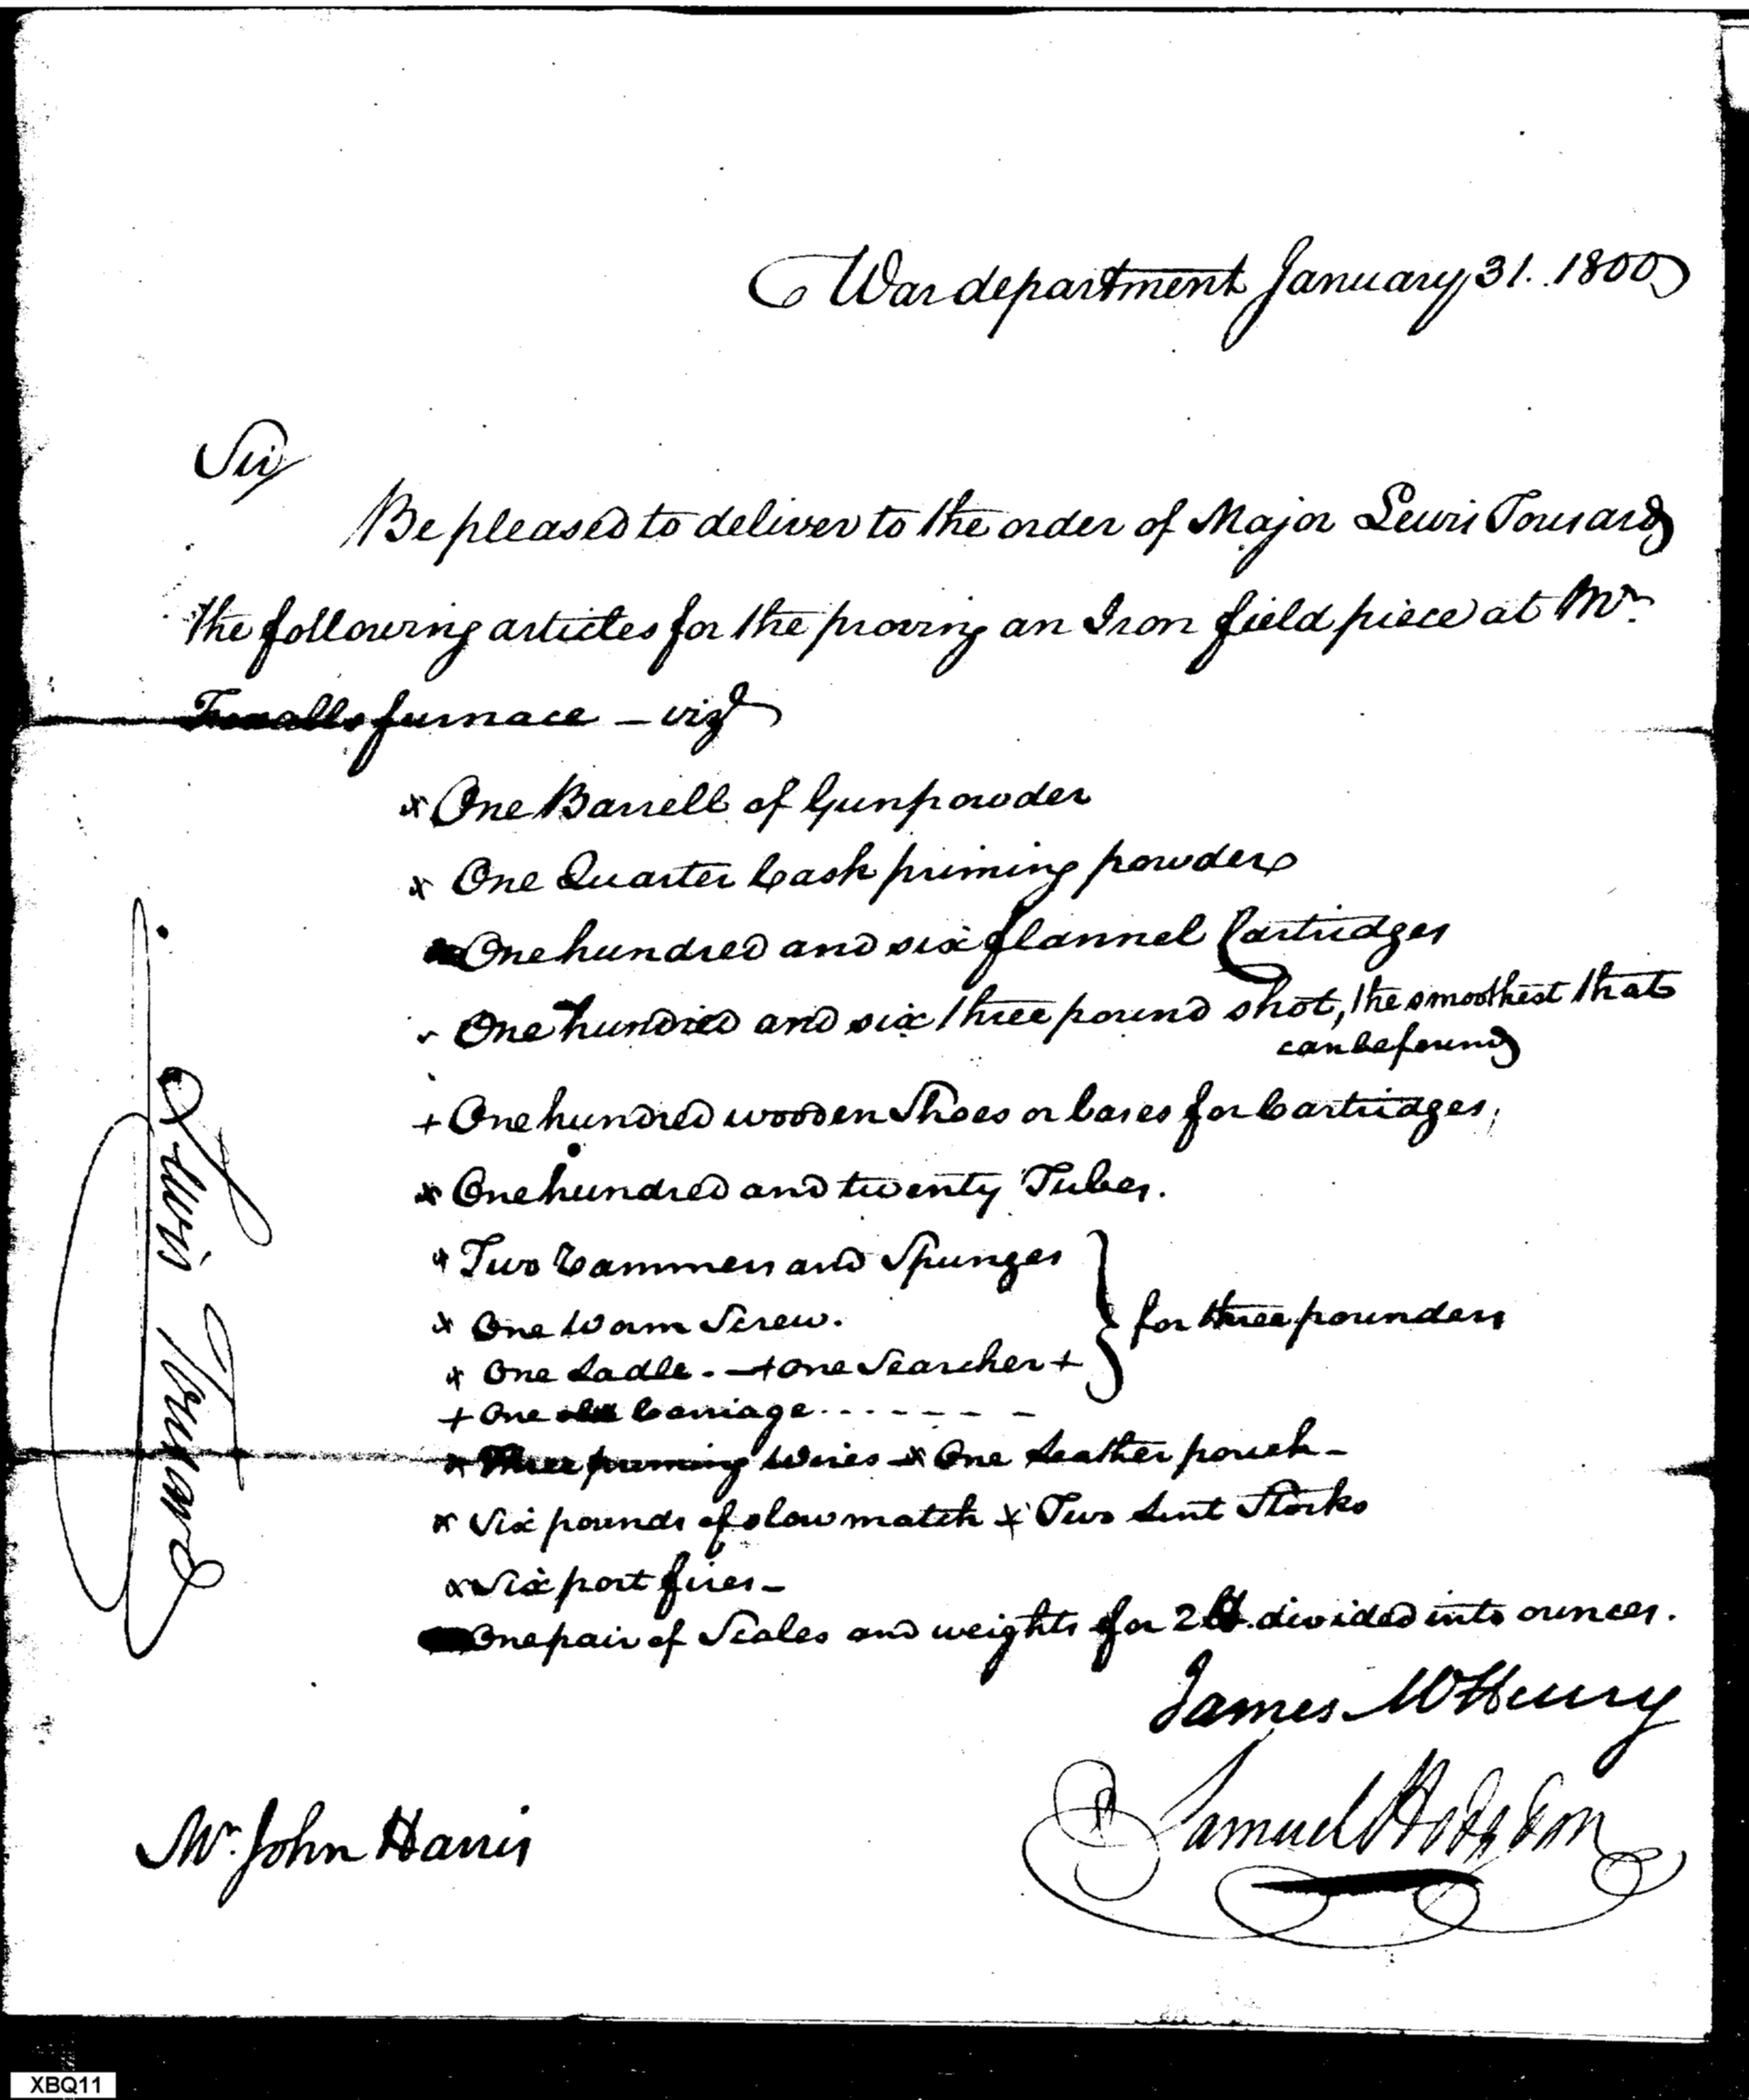 War department January 31. 1800
Sir
Be pleased to deliver to the order of Major Lewis Tousard
the following articles for the proving an Iron field piece at Mr.
furnace – vizt
x One Barrell of Gunpowder
x One Quarter Cask priming powder
One hundred and six flannel Cartridges
One hundred and six three pound shot, the smoothest that
can be found
+ One hundred wooden Shoes or bases for Cartridges,
x One hundred and twenty Tubes.
x Two Rammers and Spunges
x One Worm Screw.
x One Ladle. – + one Searcher +
for three pounders
+ One Carriage - - - - - - -
x Three priming Wires – x One Leather pouch –
x Six pounds of slow match x Two Lint Stocks
x Six port fires –
One pair of Scales and weights for 2 lb. divided into ounces.
James McHenry
Samuel Hodgdon
Mr. John Harris
Lewis Tousard
XBQ11